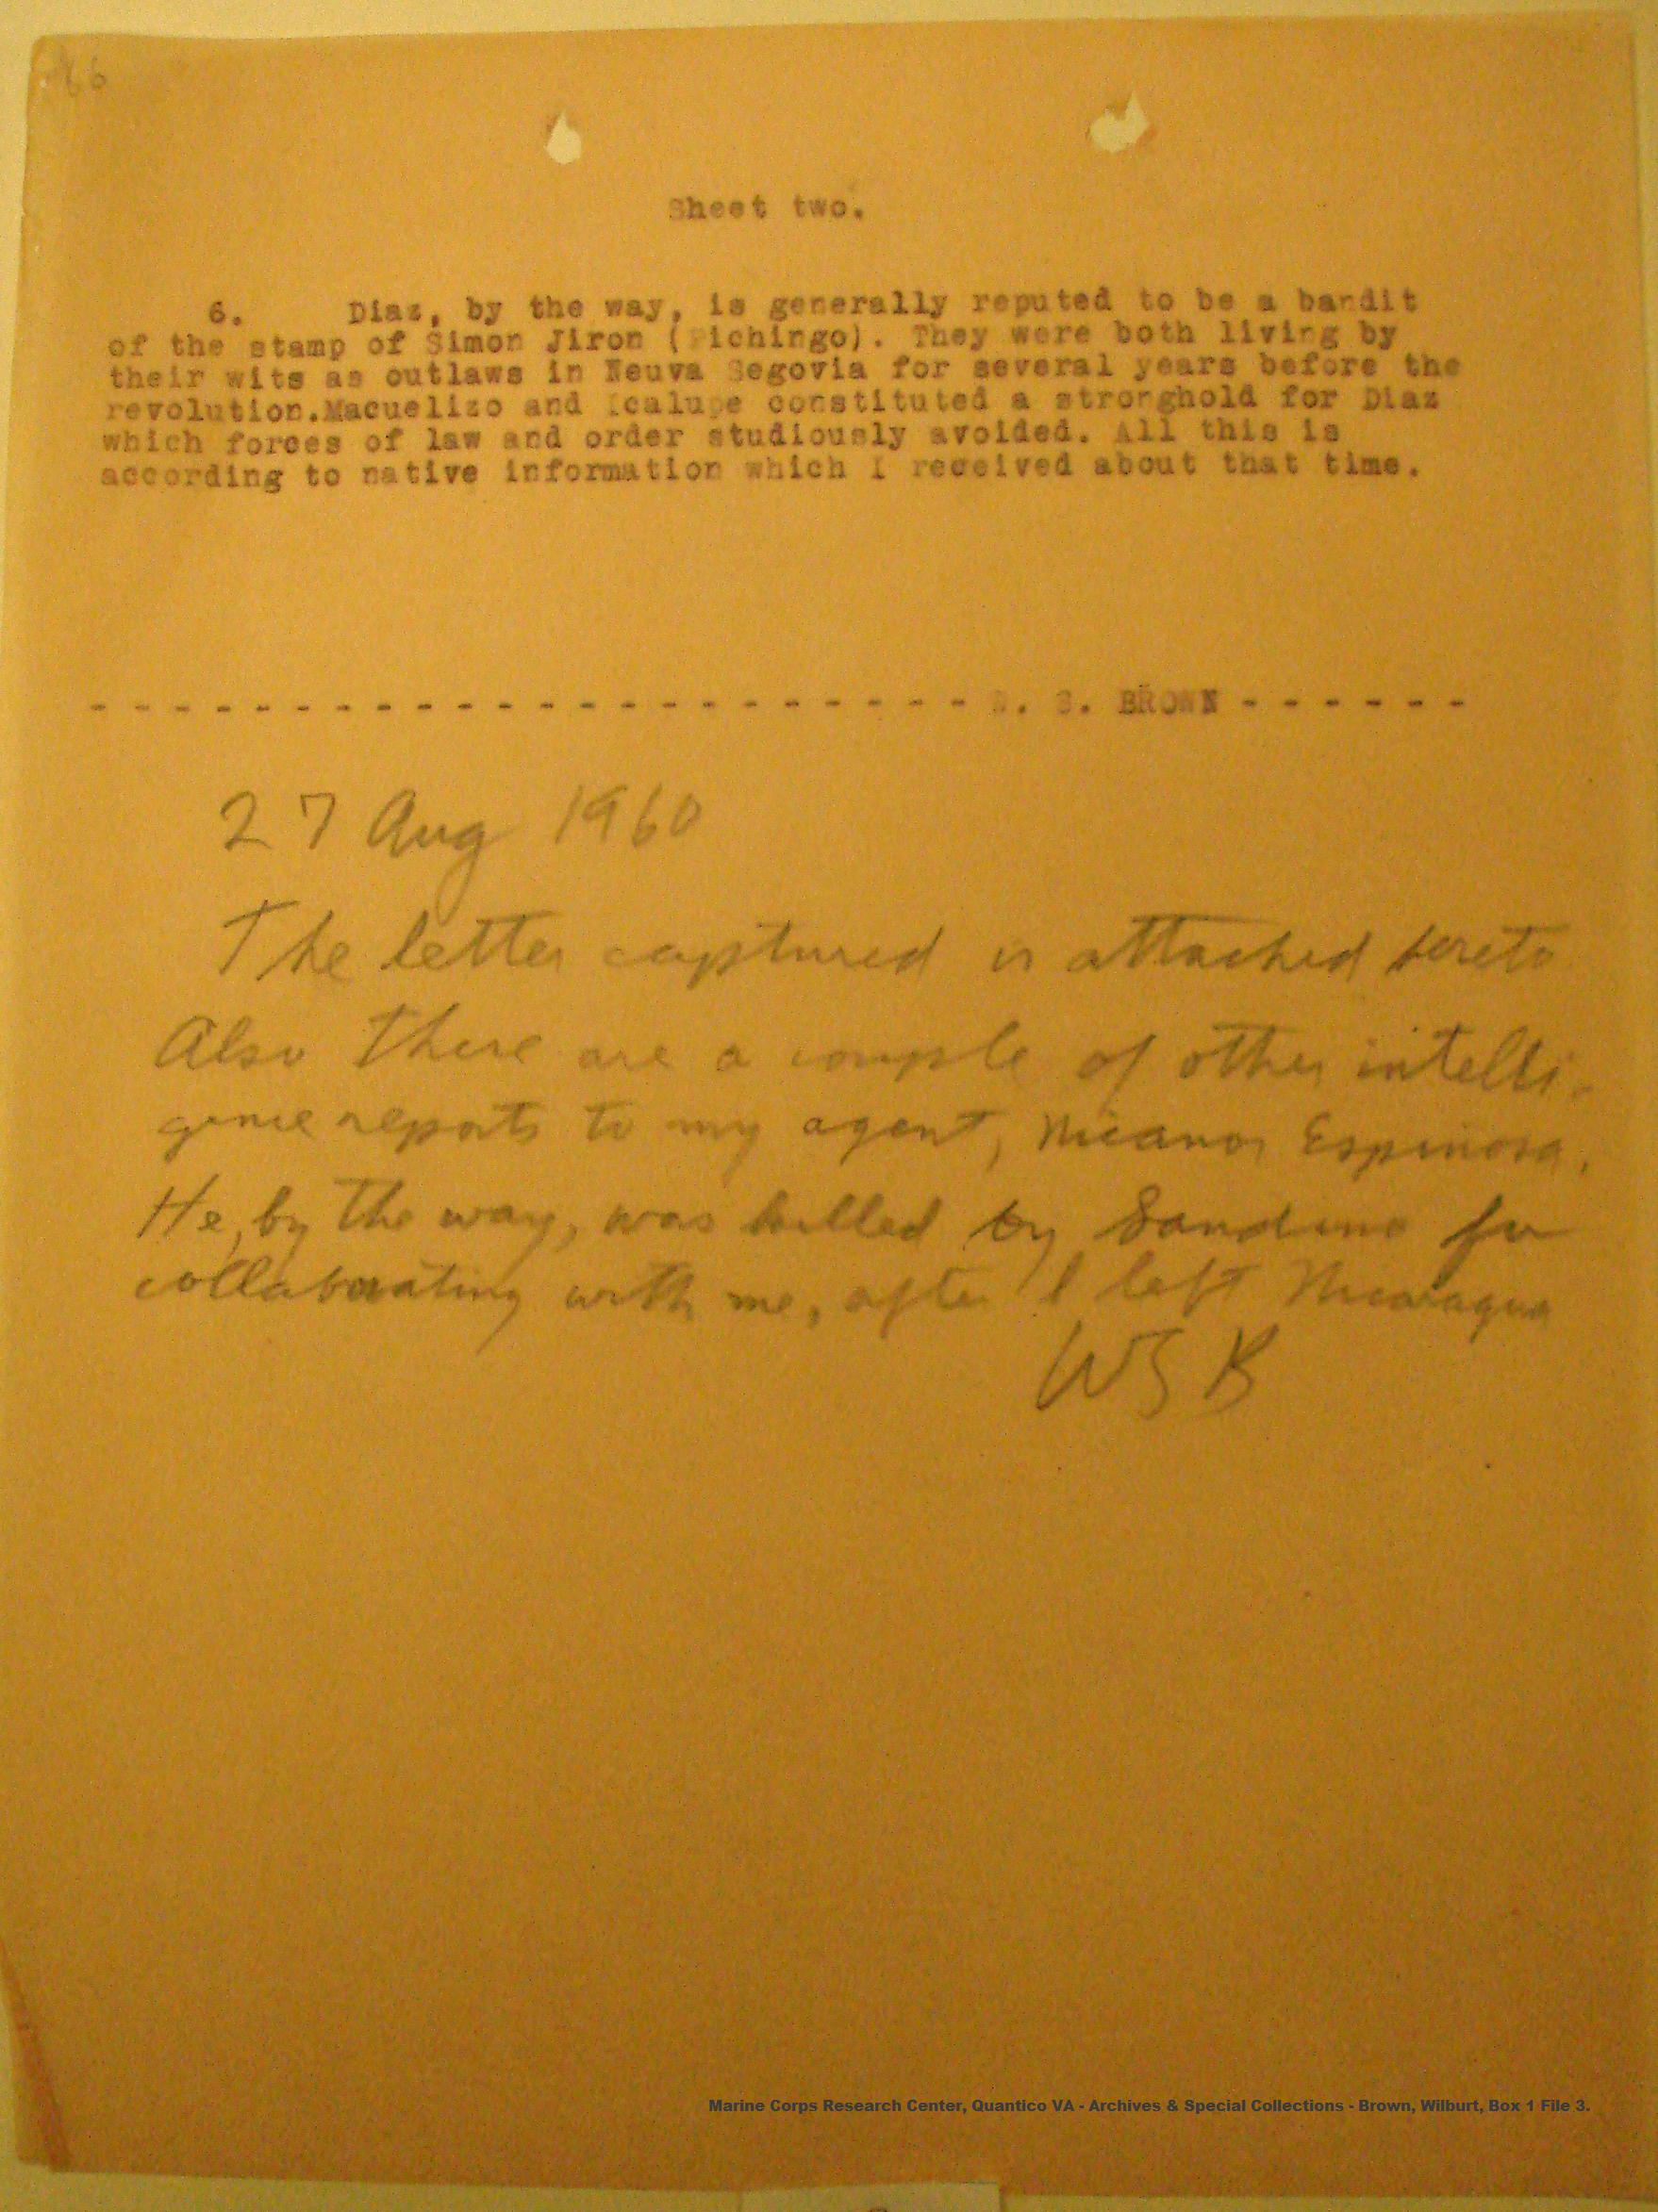 Sheet two.
6. Diaz, by the way, is generally reputed to be a bandit
of the stamp of Simon Jiron (Pichingo). They were both living by
their wits as outlaws in Neuva Segovia for several years before the
revolution.Macuelizo and Icalupe constituted a stronghold for Diaz
which forces of law and order studiously avoided. All this is
according to native information which I received about that time.
- - - - - - - - - - - - - - - - - - - - - - W. S. BROWN - - - - - -
27 Aug 1960
The letter captured is attached hereto
Also there are a couple of other intelli-
gence reports to my agent, Nicanor Espinosa.
He, by the way, was killed by Sandino for
collaborating with me, after I left Nicaragua
WSB
Marine Corps Research Center, Quantico VA - Archives & Special Collections - Brown, Wilburt, Box 1 File 3.